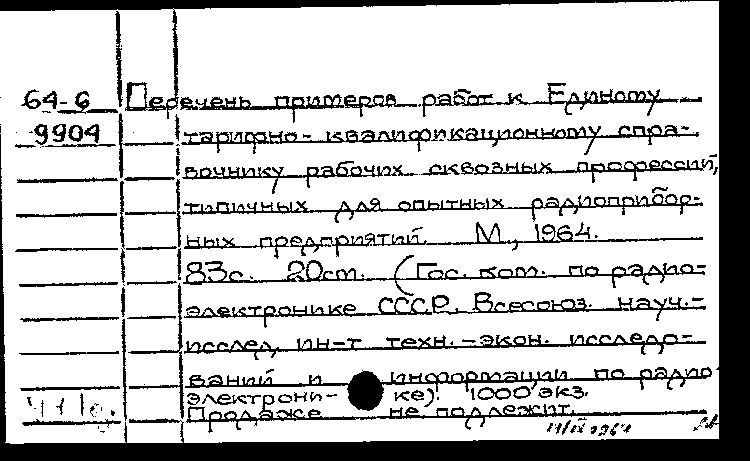 64-6 Перечень примеров работ к Единому
9904 тарифно-квалификационному спра-
вочнику рабочих сквозных профессий,
типичных для опытных радиоприбор-
ных предприятий. М., 1964.
83с. 20см. (Гос. ком. по радио-
электронике СССР. Всесоюз. науч.-
исслед. ин-т техн.-экон. исследо-
ваний и информации по радио-
электрони- ке). 1000 экз.
Продаже не подлежит.